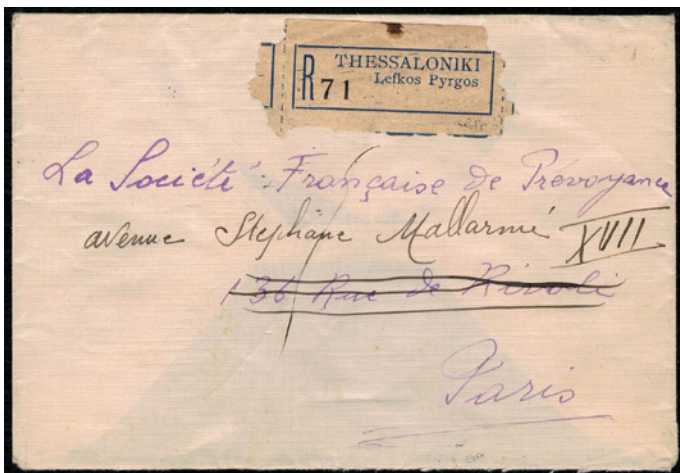 THESSALONIKI
Lefkos Pyrgos
R 71
La Société Française de Prévoyance
avenue Stéphane Mallarmé XVII
136 Rue de Rivoli
Paris